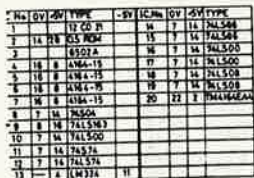 No 0V -5V TYPE -5V IC.No 0V 5V TYPE
1 14 7 14 74LS86
2 14 28 ROM 15 7 14 74LS08
3 6502A 16 7 14 74LS00
4 16 8 4164-15 17 7 14 74LS00
5 16 8 4164-15 18 7 14 74LS08
6 16 8 4164-15 19 7 14 74LS08
7 16 8 4164-15 20 22 2
8 7 14 74S04
9 8 16 74LS163
10 7 14 74LS00
11 7 14 74S74
12 7 14 74LS74
13 — 4 LM324 11